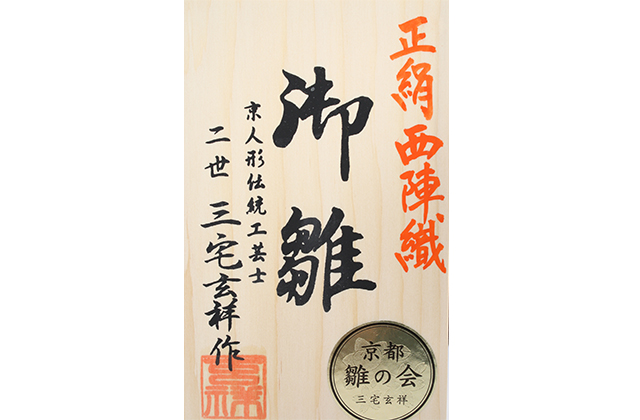 正絹西陣織
御雛
京人形伝統工芸士
二世 三宅玄祥作
京都
雛の会
三宅玄祥